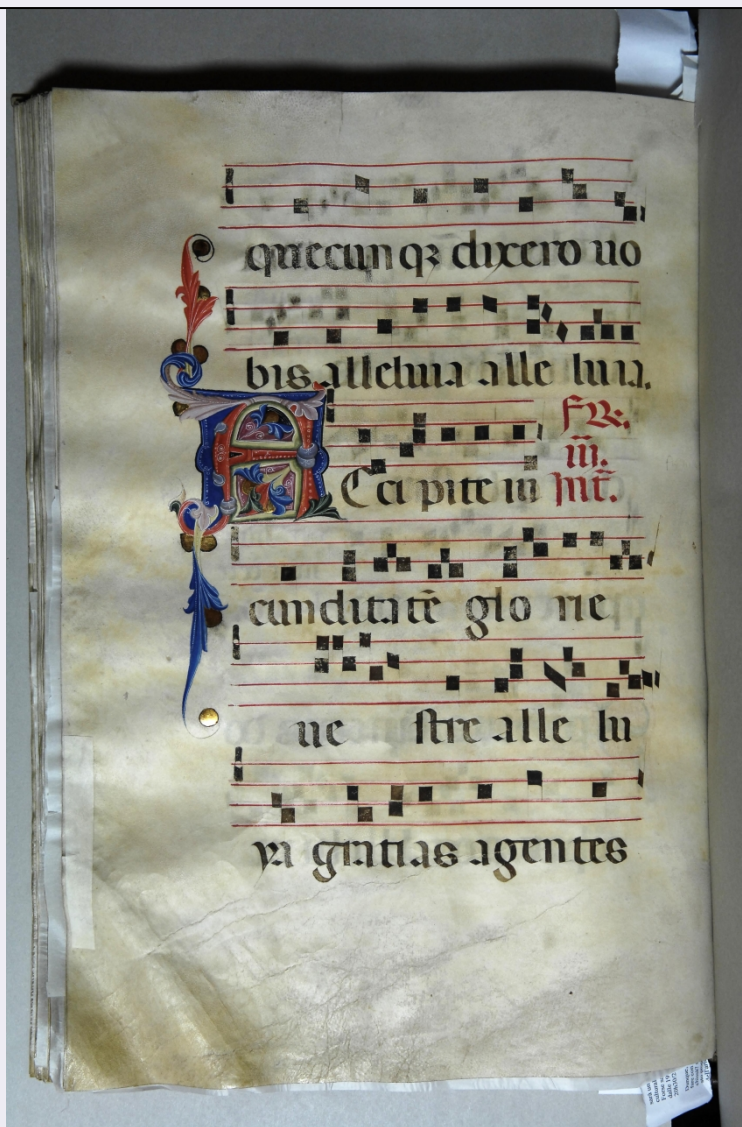 quecunqꝫ dixero uo
bis alleluia alle luia.
ACcipite iu
fr̃.
iii.
Int̃.
cunditatẽ glo rie
ue stre alle lu
ya gratias agentes